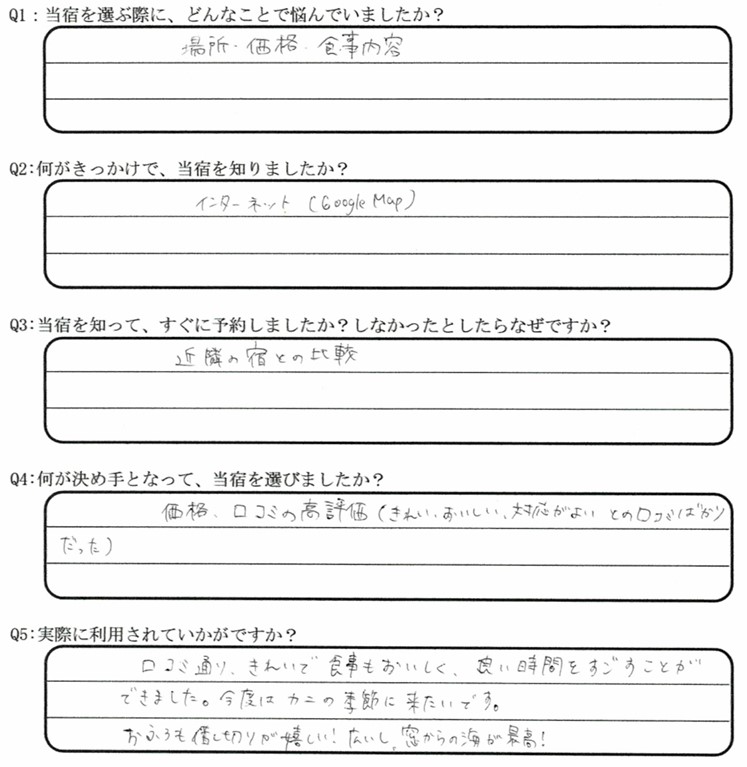 Q1：当宿を選ぶ際に、どんなことで悩んでいましたか？
場所・価格・食事内容
Q2:何がきっかけで、当宿を知りましたか？
インターネット (Google Map)
Q3:当宿を知って、すぐに予約しましたか？しなかったとしたらなぜですか？
近隣の宿との比較
Q4:何が決め手となって、当宿を選びましたか？
価格、口コミの高評価(きれい、おいしい、対応がよい との口コミばかり
だった)
Q5:実際に利用されていかがですか？
口コミ通り、きれいで食事もおいしく、良い時間をすごすことが
できました。今度はカニの季節に来たいです。
おふろも貸し切りが嬉しい!広いし、窓からの海が最高!